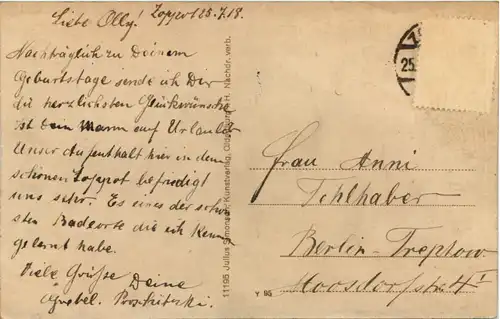 Liebe Olly! Zoppot 25.7.18.
Nachträglich zu Deinem
Geburtstage sende ich Dir
die herzlichsten Glückwünsche
Ist Dein Mann auf Urlaub?
Unser Aufenthalt hier in dem
schönen Zoppot befriedigt
uns sehr. Es eines der schön-
sten Badeorte die ich kenn
gelernt habe.
Viele Grüsse Deine
11196 Julius Simonsen, Kunstverlag, Oldenburg i. H. Nachdr. verb.
25.
Frau Anni
Fehlhaber
Berlin-Treptow
Moosdorfstr. 4 I
Y 95